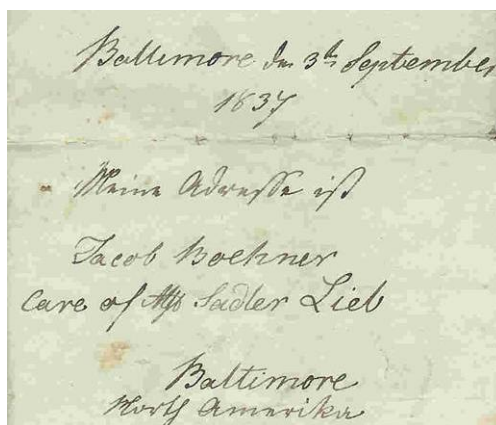 Baltimore den 3ten September
1837
Meine Adresse ist
Jacob Boehner
Care of Sadler Lieb
Baltimore
North Amerika